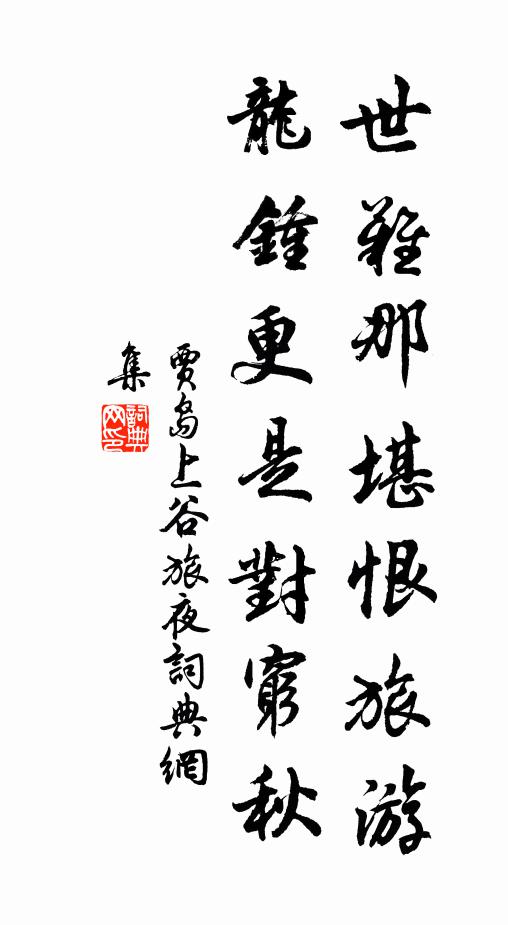 世難那堪恨旅游
龍鍾更是對窮秋
賈島上谷旅夜詞典網
集
詞典
网印